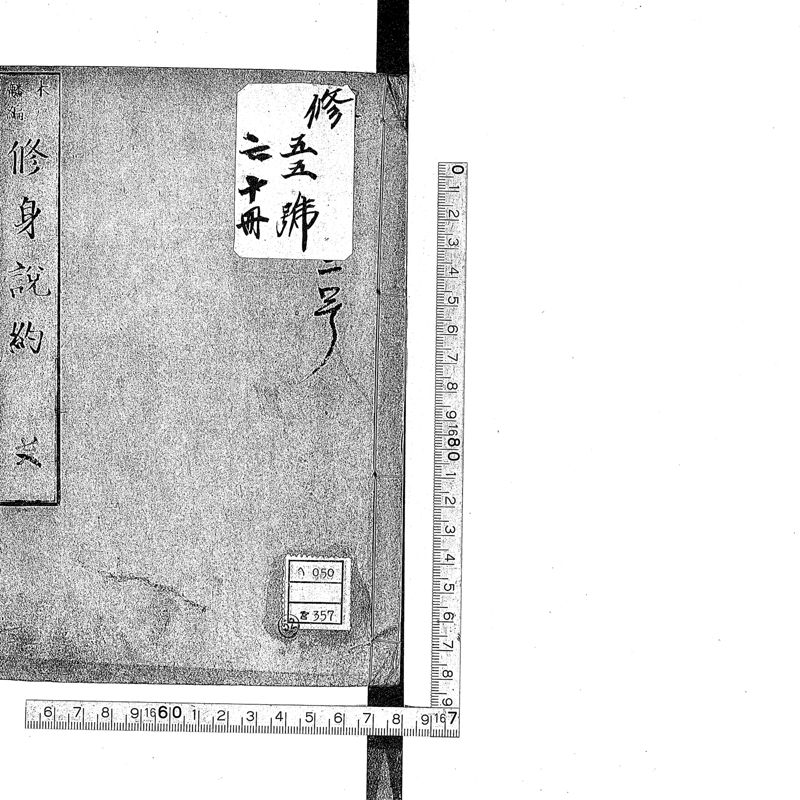 修
五五號
六十冊
二号
木
編
修身説約
へ 050
357
0 1 2 3 4 5 6 7 8 9 16 80 1 2 3 4 5 6 7 8 9
6 7 8 9 16 60 1 2 3 4 5 6 7 8 9 16 7